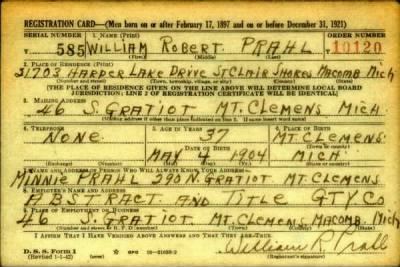 REGISTRATION CARD—(Men born on or after February 17, 1897 and on or before December 31, 1921)
SERIAL NUMBER 1. NAME (Print) ORDER NUMBER
585 WILLIAM ROBERT PRAHL 10120
(First) (Middle) (Last)
2. PLACE OF RESIDENCE (Print)
31703 HARPER LAKE DRIVE ST CLAIR SHORES MACOMB MICH
(Number and street) (Town, township, village, or city) (County) (State)
[THE PLACE OF RESIDENCE GIVEN ON THE LINE ABOVE WILL DETERMINE LOCAL BOARD
JURISDICTION; LINE 2 OF REGISTRATION CERTIFICATE WILL BE IDENTICAL]
3. MAILING ADDRESS
46 S. GRATIOT MT. CLEMENS MICH
4. TELEPHONE 5. AGE IN YEARS 6. PLACE OF BIRTH
NONE 37 MT. CLEMENS
DATE OF BIRTH (Town or county)
MAY 4 1904 MICH
(Exchange) (Number) (Mo.) (Day) (Yr.) (State or country)
7. NAME AND ADDRESS OF PERSON WHO WILL ALWAYS KNOW YOUR ADDRESS
MINNIE PRAHL 390 N. GRATIOT MT. CLEMENS
8. EMPLOYER'S NAME AND ADDRESS
ABSTRACT AND TITLE GTY CO
9. PLACE OF EMPLOYMENT OR BUSINESS
46 S. GRATIOT MT. CLEMENS MACOMB MICH
(Number and street or R. F. D. number) (Town) (County) (State)
I AFFIRM THAT I HAVE VERIFIED ABOVE ANSWERS AND THAT THEY ARE TRUE.
D. S. S. Form 1
(Revised 1-1-42) William R. Prahl